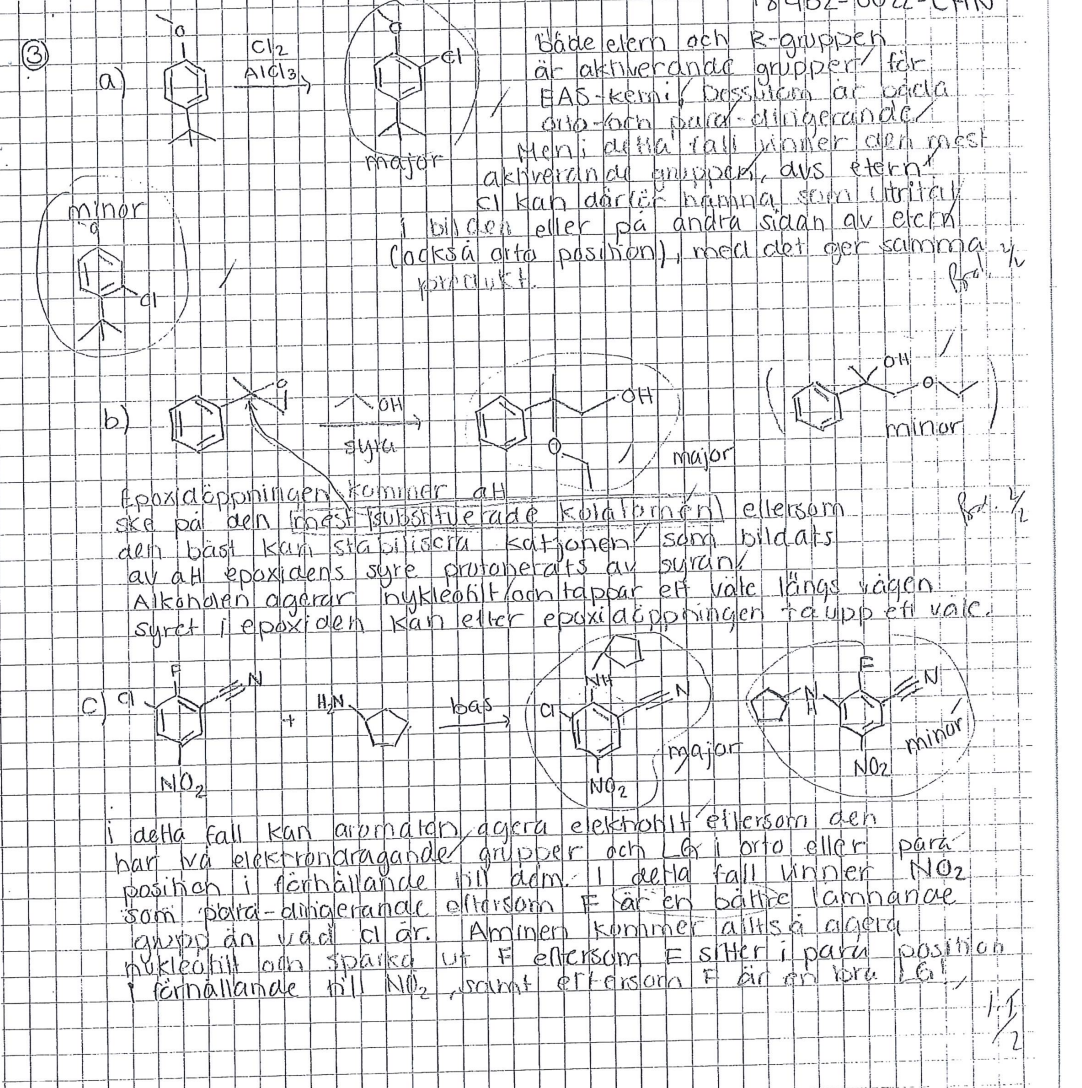 18402-0022-CHN
③
a)
O
Cl2
AlCl3
O
Cl
major
Både etern och R-gruppen
är aktiverande grupper för
EAS-kemi, dessutom är båda
orto- och para-dirigerande.
Men i detta fall vinner den mest
aktiverande gruppen, dvs etern.
Cl kan därför hamna som utritat
i bilden eller på andra sidan av etern
(också orto position), med det ger samma
produkt.
minor
O
Cl
b)
O
OH
syra
OH
O
major
OH
O
minor
Epoxidöppningen kommer att
ske på den mest substituerade kolatomen eftersom
den bäst kan stabilisera katjonen som bildats
av att epoxidens syre protonerats av syran.
Alkoholen agerar nykleofilt och tappar ett väte längs vägen.
Syret i epoxiden kan efter epoxidöppningen ta upp ett väte.
c)
Cl
F
N
NO2
+
H2N
bas
NH
Cl
N
NO2
major
N
H
F
N
NO2
minor
I detta fall kan aromaten agera elektrofilt eftersom den
har två elektrondragande grupper och LG i orto eller para
position i förhållande till dem. I detta fall vinner NO2
som para-dirigerande eftersom F är en bättre lämnande
grupp än vad Cl är. Aminen kommer alltså agera
nykleofilt och sparka ut F eftersom F sitter i para position
i förhållande till NO2, samt eftersom F är en bra LG!